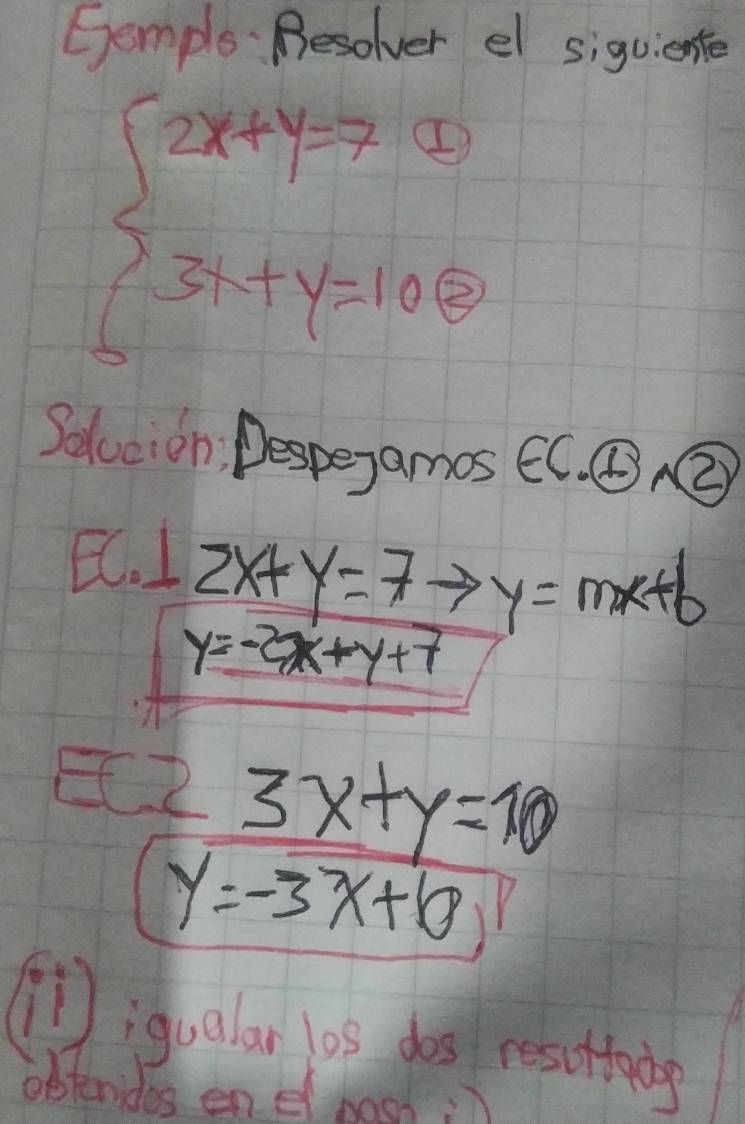 Ejemplo: Resolver el siguiente
2x+y=7 ①
3x+y=10 ②
Solución: Despejamos EC. ① ∧ ②
EC.1 2x+y=7→y=mx+b
y=-2x+y+7
EC2 3x+y=10
y=-3x+b
(ii) igualar los dos resultados
obtenidos en el paso i)